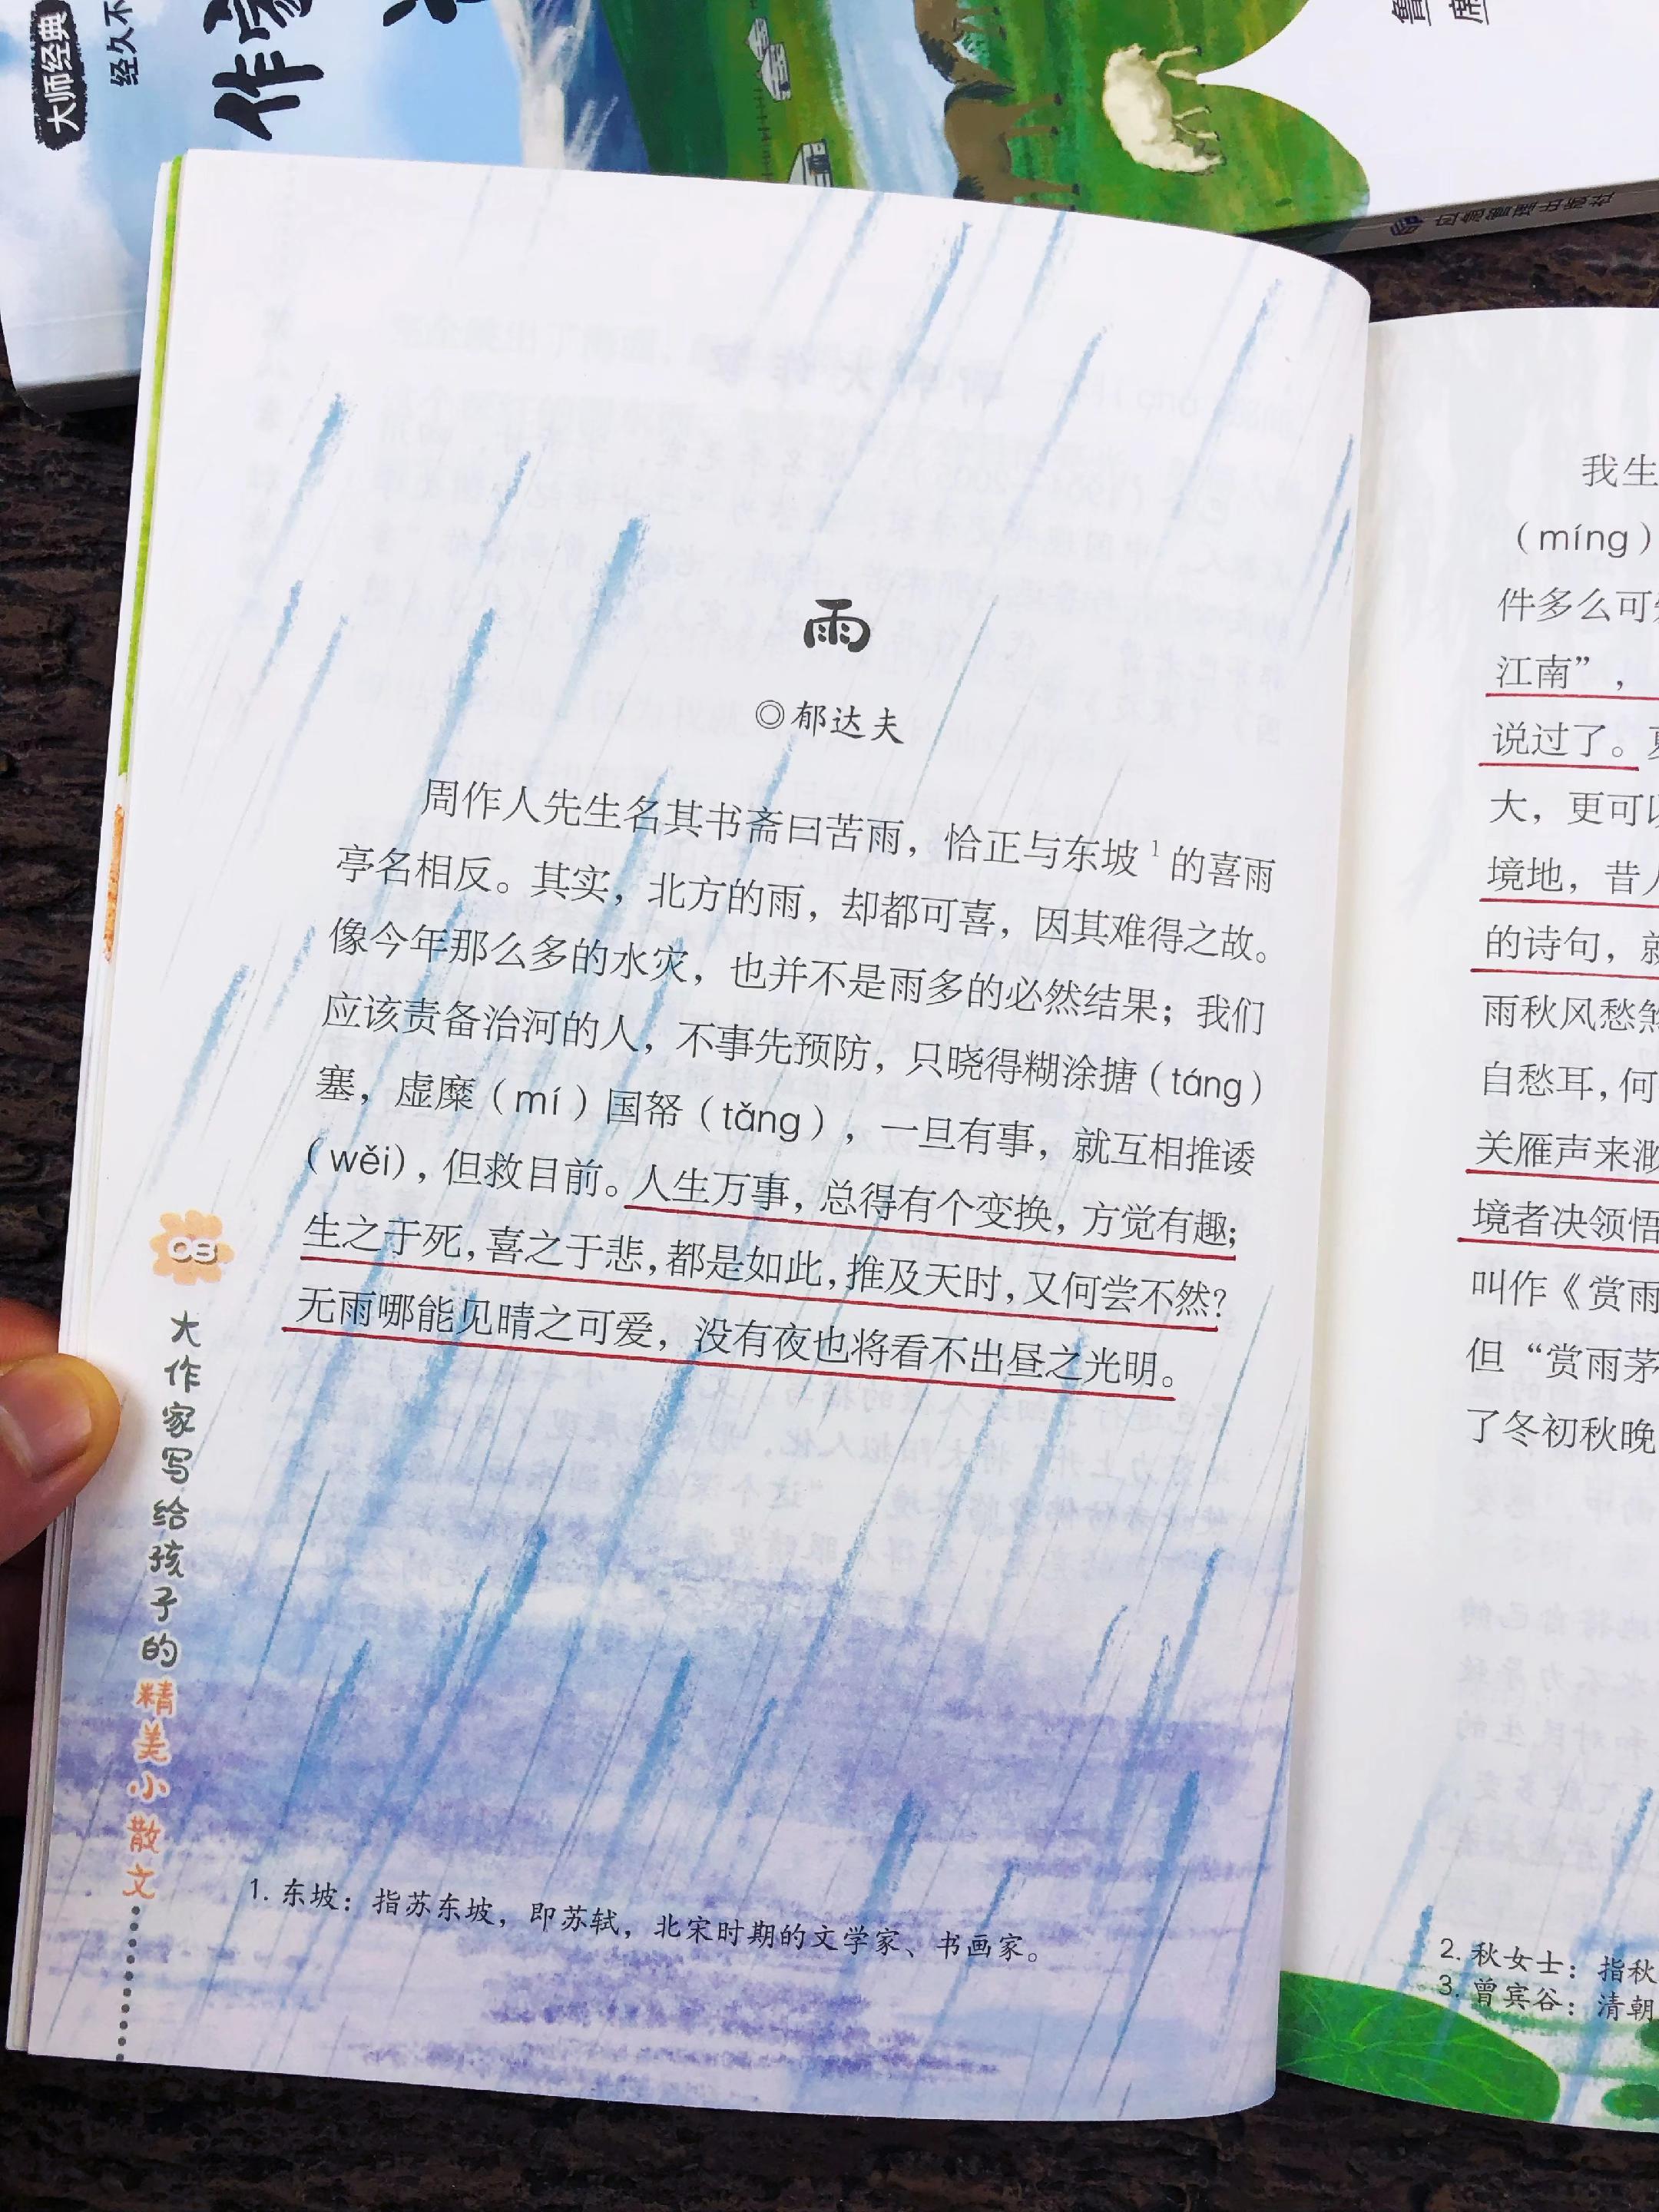 大师经典
经久不
作家
雨
◎郁达夫
周作人先生名其书斋曰苦雨，恰正与东坡1的喜雨
亭名相反。其实，北方的雨，却都可喜，因其难得之故。
像今年那么多的水灾，也并不是雨多的必然结果；我们
应该责备治河的人，不事先预防，只晓得糊涂搪（táng）
塞，虚糜（mí）国帑（tǎng），一旦有事，就互相推诿
（wěi），但救目前。人生万事，总得有个变换，方觉有趣；
生之于死，喜之于悲，都是如此，推及天时，又何尝不然？
无雨哪能见晴之可爱，没有夜也将看不出昼之光明。
1. 东坡：指苏东坡，即苏轼，北宋时期的文学家、书画家。
08
大作家写给孩子的精美小散文
我生
（míng）
件多么可
江南”，
说过了。
大，更可以
境地，昔
的诗句，
雨秋风愁煞
自愁耳，何
关雁声来
境者决领悟
叫作《赏雨
但“赏雨茅
了冬初秋晚
2. 秋女士：指秋
3. 曾宾谷：清朝